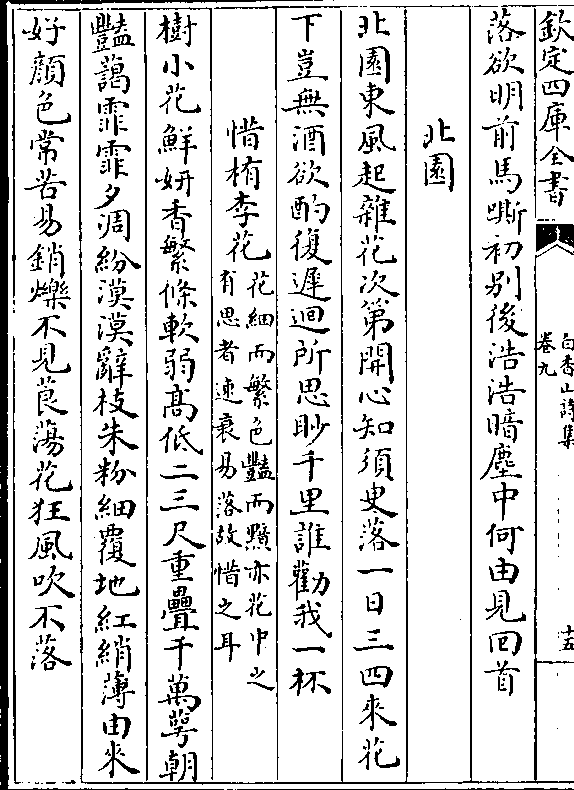 欽定四庫全書
白香山詩集
卷九
十五
落欲明前馬嘶初别後浩浩暗塵中何由見回首
北園
北園東風起雜花次第開心知須臾落一日三四來花
下豈無酒欲酌復遲迴所思眇千里誰勸我一杯
惜栯李花
花細而繁色豔而黯亦花中之
有思者速衰易落故惜之耳
樹小花鮮妍香繁條軟弱髙低二三尺重疊千萬萼朝
豔藹霏霏夕凋紛漠漠辭枝朱粉細覆地紅綃薄由來
好顔色常苦易銷爍不見莨蕩花狂風吹不落